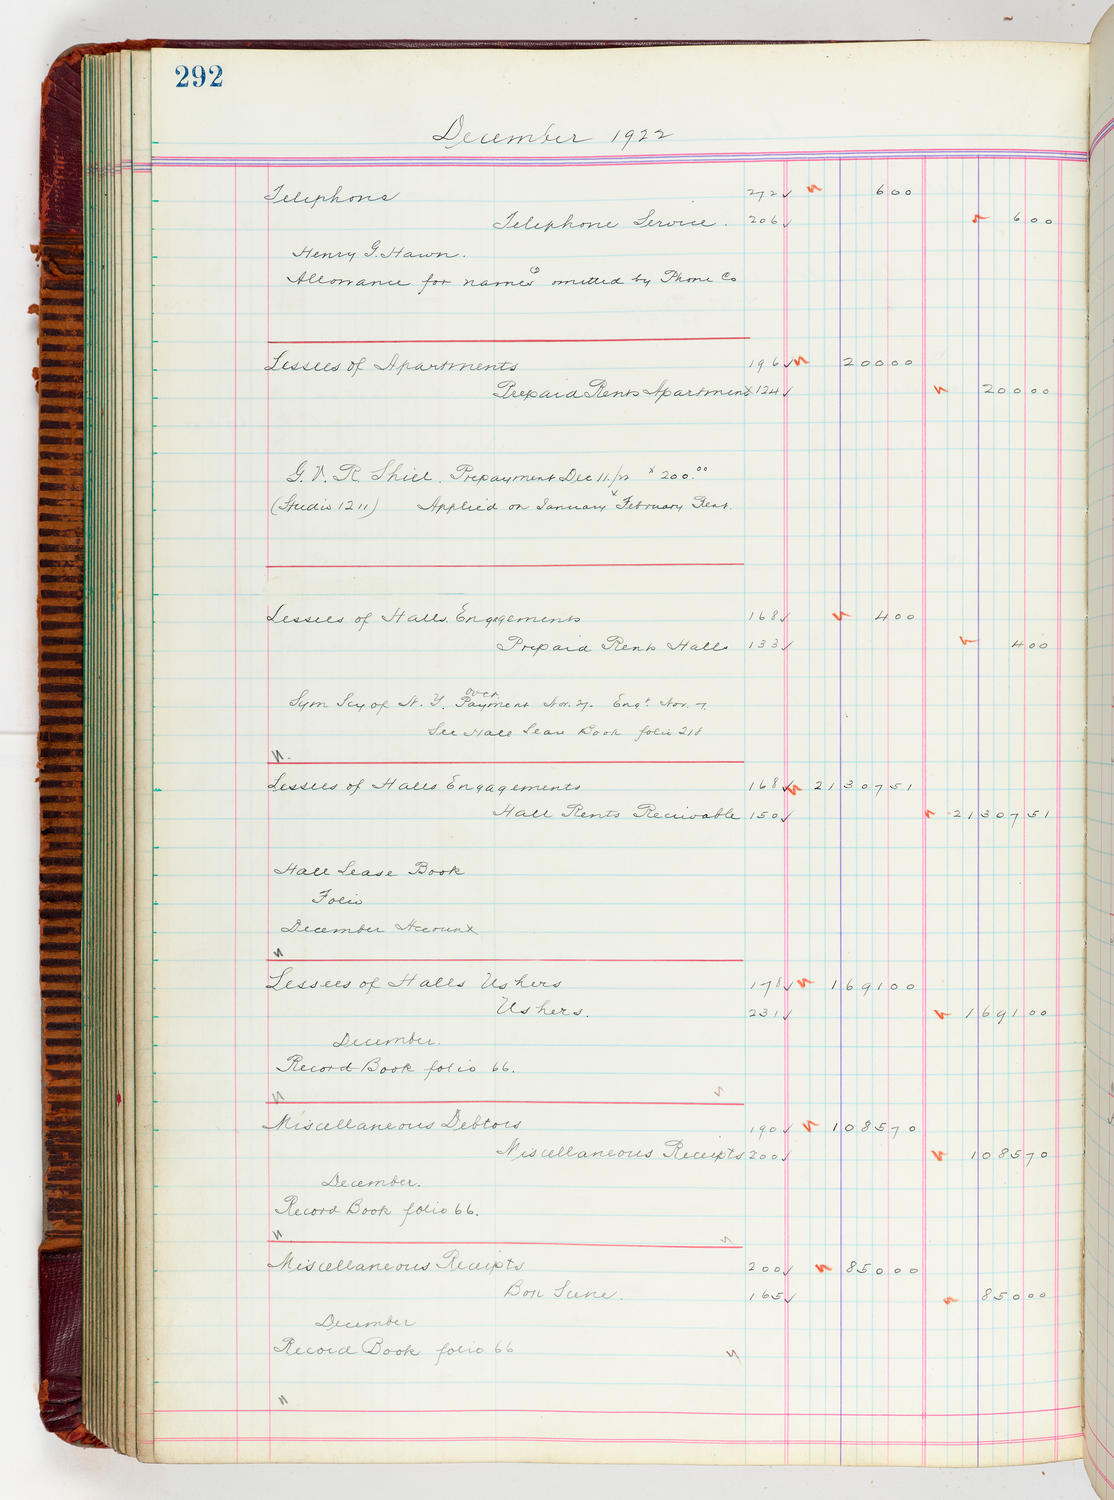 292
December 1922
Telephone 272 ✓ 6 00
Telephone Service. 206 ✓ 6 00
Henry G. Hawn.
Allowance for names omitted by Phone Co
Lessees of Apartments 196 ✓ 200 00
Prepaid Rents Apartments 124 ✓ 200 00
G. V. R. Shiel. Prepayment Dec 11/22 $200.00
(Studio 1211) Applied on January & February Rent.
Lessees of Halls Engagements 168 ✓ 4 00
Prepaid Rents Halls 133 ✓ 4 00
over
Sym Scy of N. Y. Payment Nov. 27. Engt. Nov. 7.
See Hall Lease Book folio 218
Lessees of Halls Engagements 168 ✓ 21307 51
Hall Rents Receivable 150 ✓ 21307 51
Hall Lease Book
Folio
December Account
Lessees of Halls Ushers 178 ✓ 1691 00
Ushers. 231 ✓ 1691 00
December.
Record Book folio 66.
Miscellaneous Debtors 190 ✓ 1085 70
Miscellaneous Receipts 200 ✓ 1085 70
December.
Record Book folio 66.
Miscellaneous Receipts 200 ✓ 850 00
Box Scene. 165 ✓ 850 00
December
Record Book folio 66